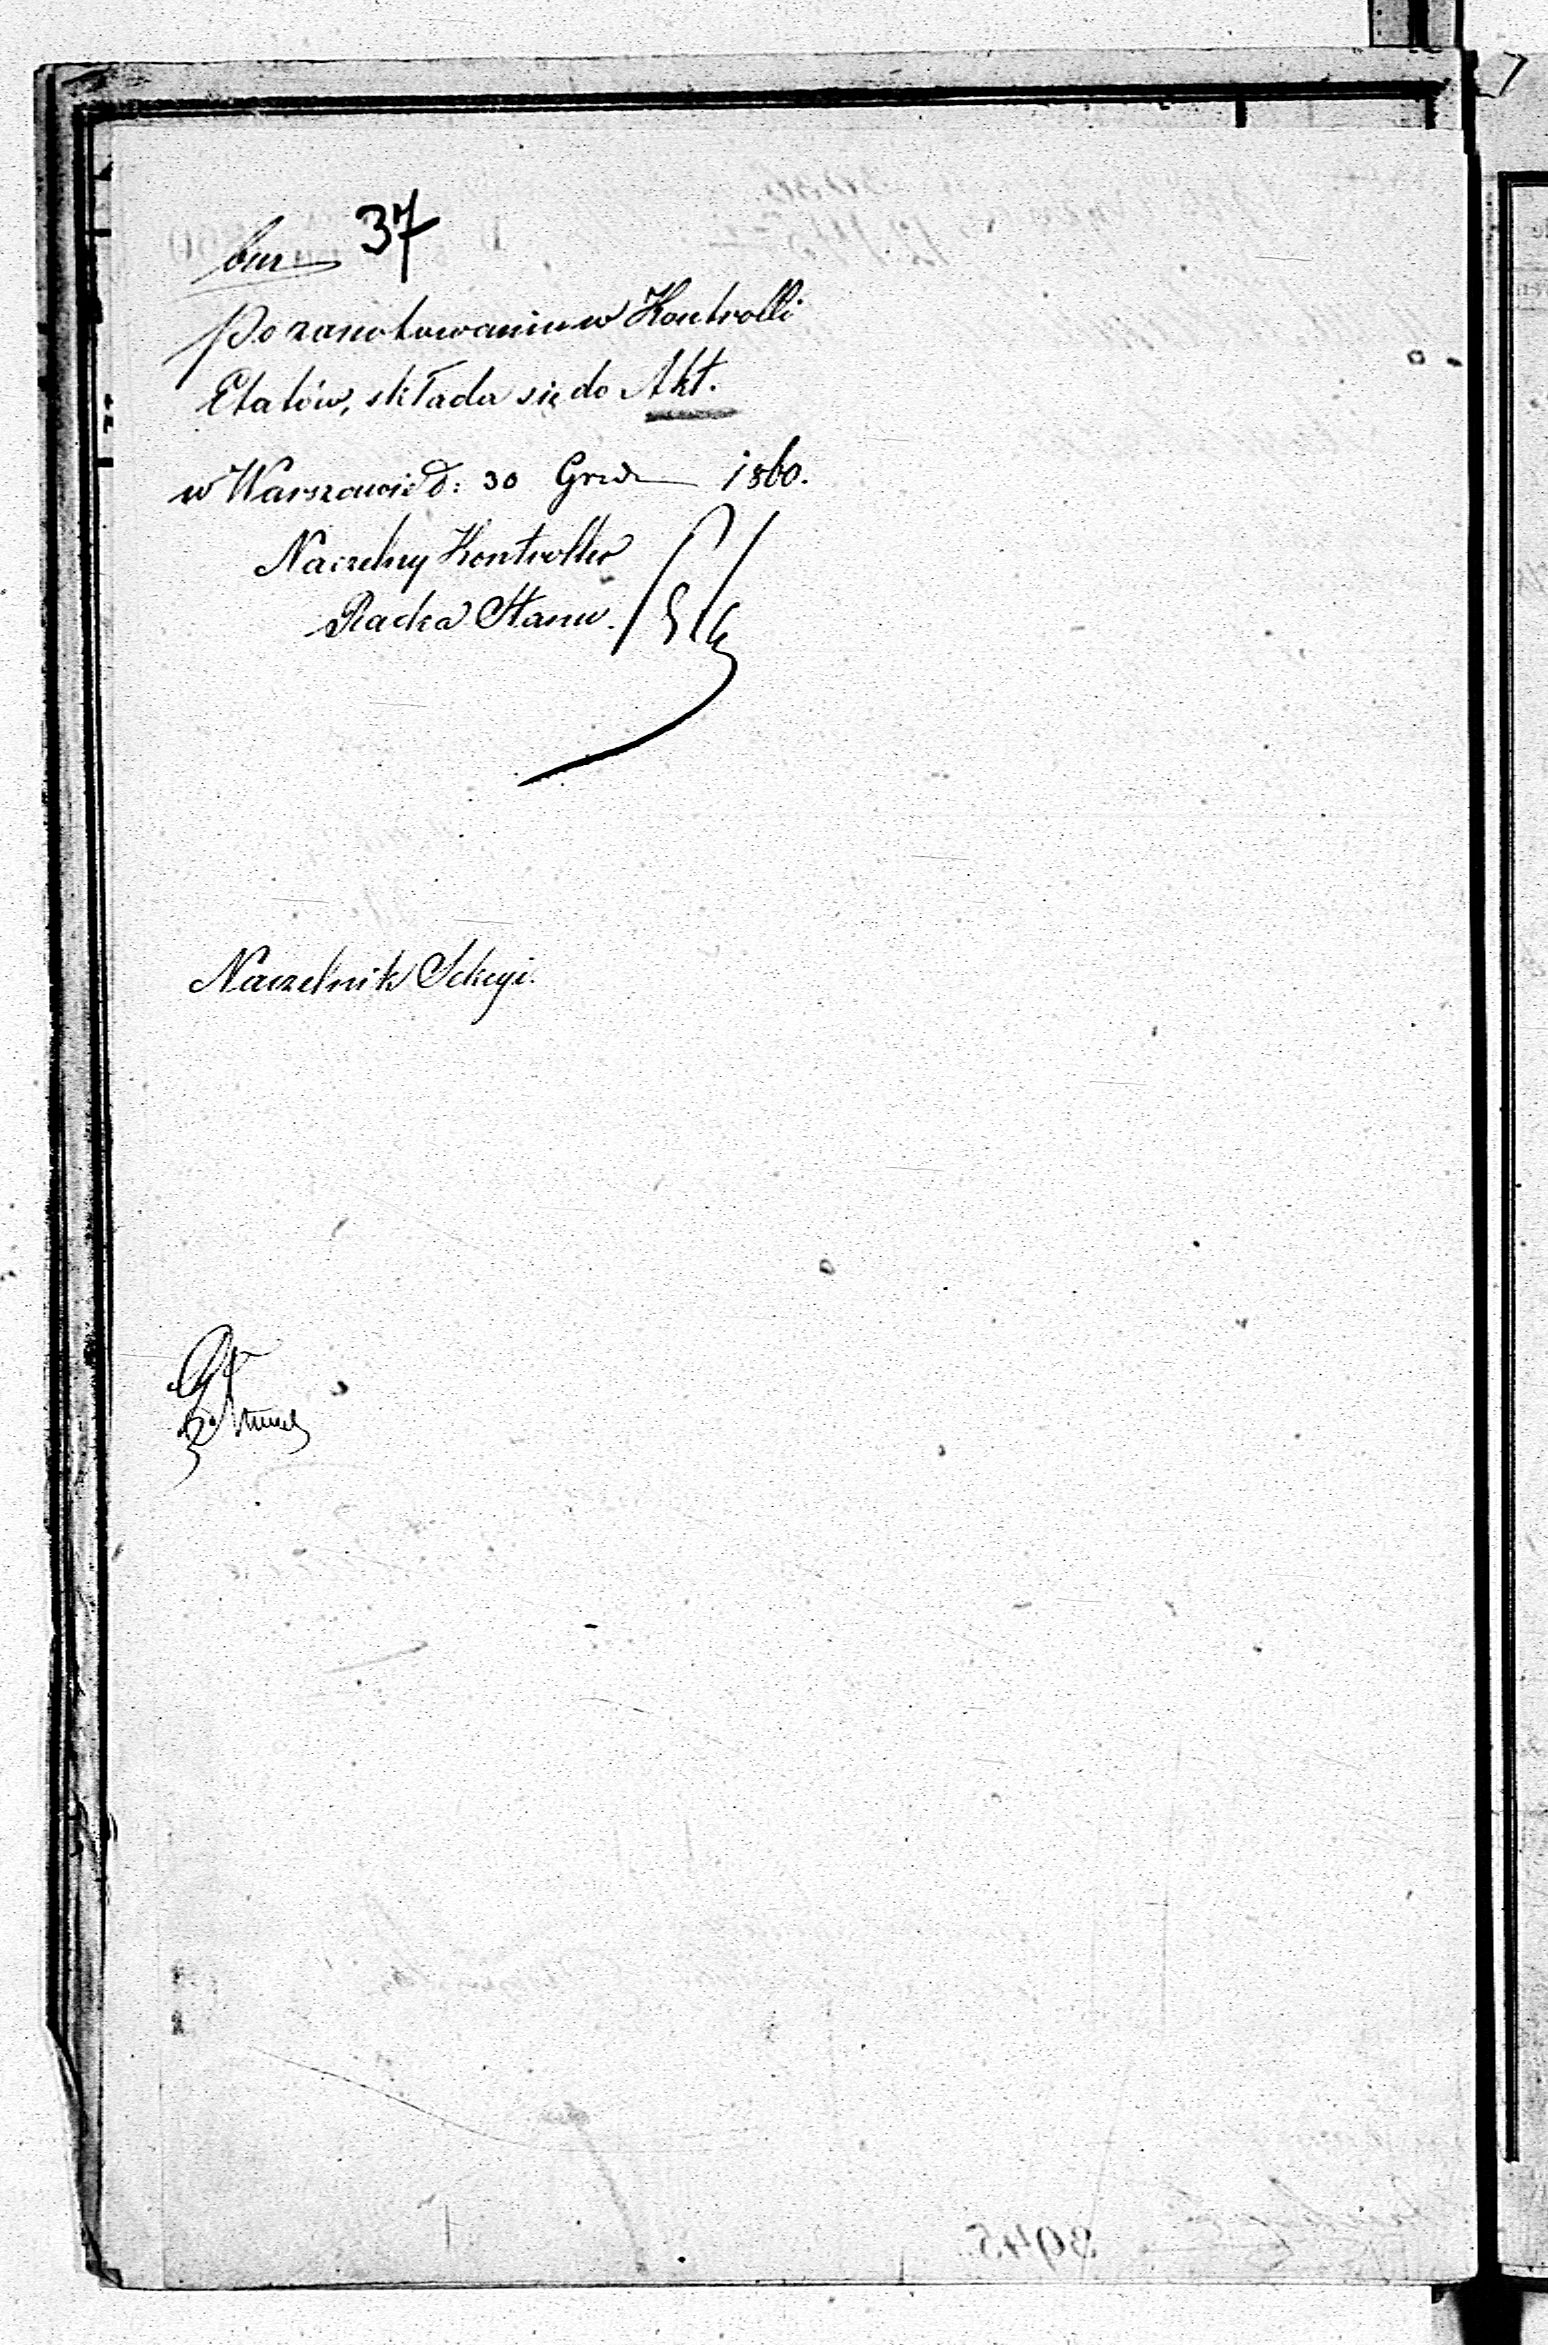 37
Po zanotowaniu w Kontrolli
Etatów, składa się do Akt.
w Warszawie d: 30 Grud 1860.
Naczelny Kontroller
Radca Stanu.
Naczelnik Sekcyi.